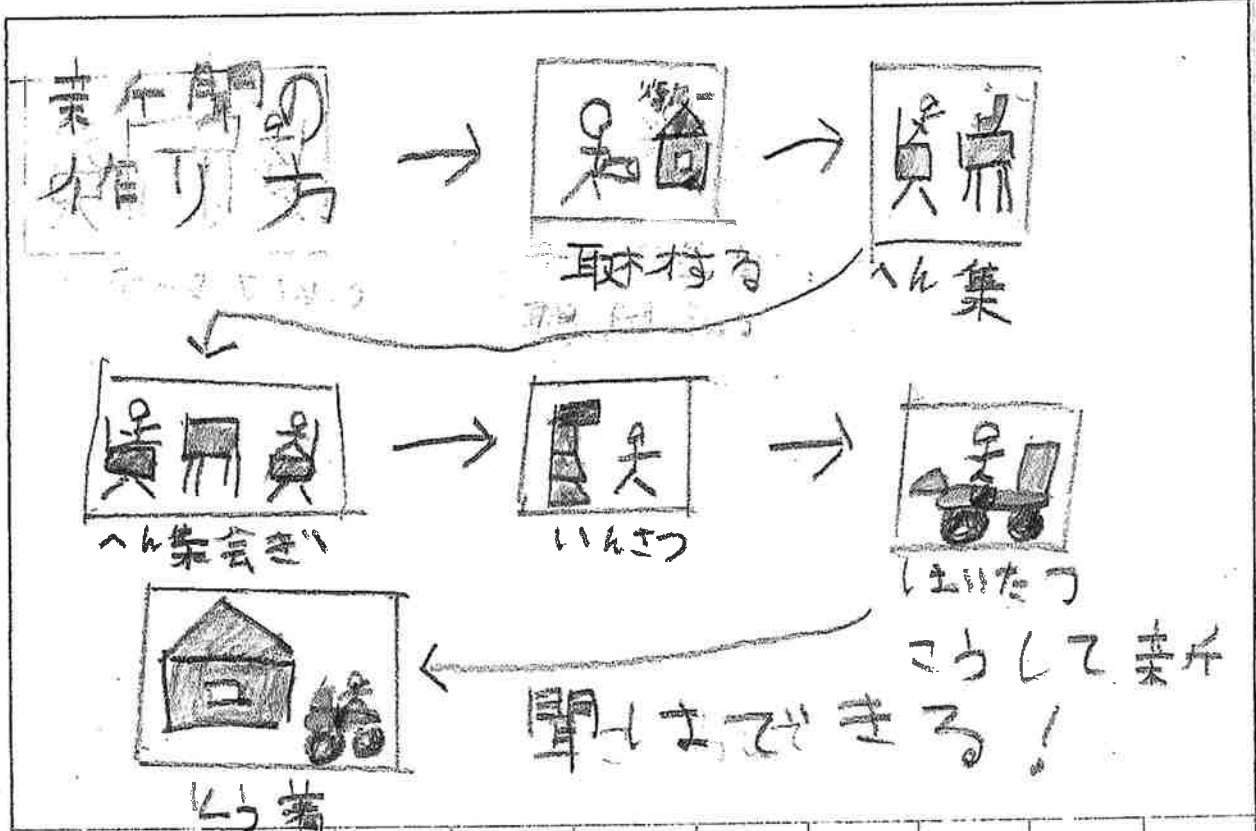 新聞の
作り方
取材する
へん集
へん集会ぎ
いんさつ
はいたつ
とう着
こうして新
聞はできる!